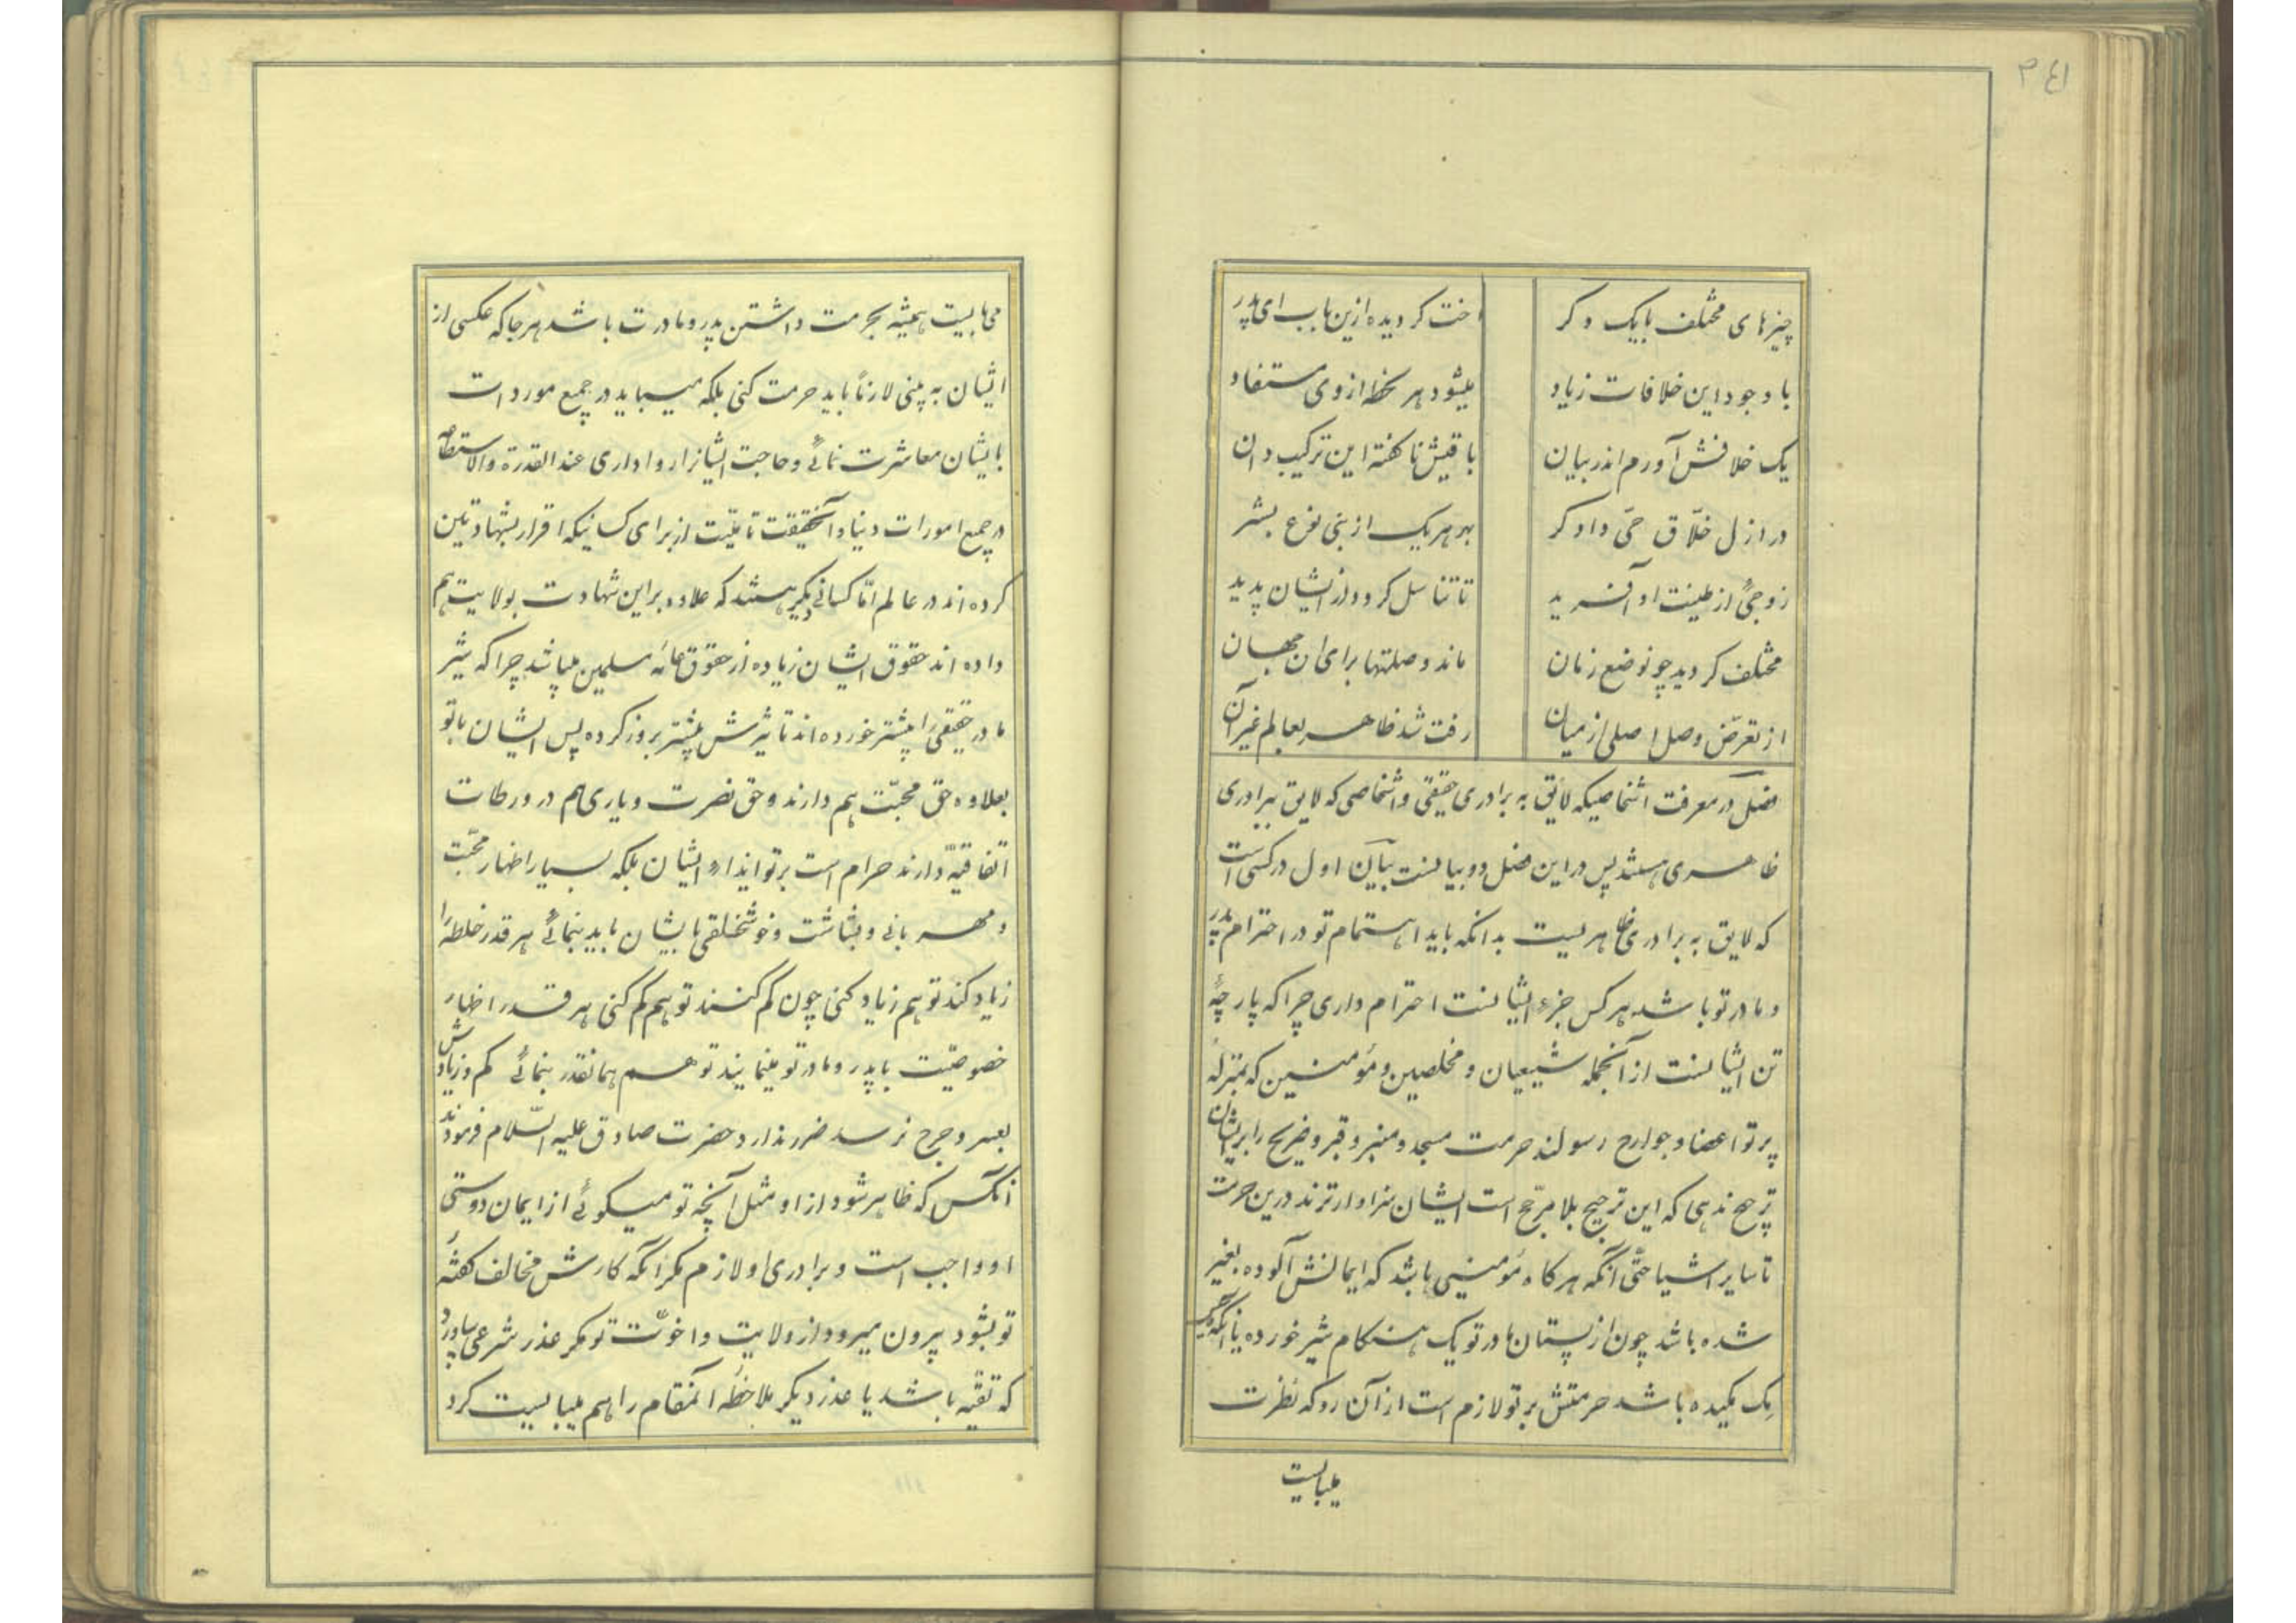 ۳٤۱
چیزهای مختلف با یک دکر اخت کردیده ازین باب ای پدر
با وجود این خلافات زیاد میشود هر لحظه از وی مستفاد
یک خلافش آورم اندر بیان باقیش ناکفته این ترکیب دان
در ازل خلّاق حیّ دادکر بهر هریک از بنی نوع بشر
زوجیٔ از طینت او آفرید تا تناسل کردد از ایشان پدید
مختلف کردید چو نوضع زمان ماند وصلتها برای ان جهان
از تعرّض وصل اصلی از میان رفت شد ظاهر بعالم غیر آن
فصل در معرفت اشخاصیکه لایق به برادری حقیقی و اشخاصی که لایق ببرادری
ظاهری هستند پس در این فصل دو بیانست بیان اول در کسی است
که لایق به برادری ظاهریست بدانکه باید اهتمام تو در احترام پدر
و مادر تو باشد هر کس جزء ایشانست احترام داری چرا که پارچهٔ
تن ایشانست از آنجمله شیعیان و مخلصین و مؤمنین که بمنزلهٔ
پرتو اعضا و جوارح رسولند حرمت مسجد و منبر و قبر و ضریح را برایشان
ترجیح ندهی که این ترجیح بلا مرجّح است ایشان سزاوارترند درین حرمت
تا سایر اشیا حتّی آنکه هرکاه مؤمنی باشد که ایمانش آلوده بغیر
شده باشد چون از پستان مادر تو یک هنکام شیر خورده یا آنکه یک
مک مکیده باشد حرمتش بر تو لازم است از آن رو که نظرت
میبایست
میبایست همیشه بحرمت داشتن پدر و مادرت باشد هر جا که عکسی از
ایشان به بینی لازماً باید حرمت کنی بلکه میباید در جمیع موردات
بایشان معاشرت نمائی و حاجت ایشانرا روا داری عند القدرة والاستطاعه
در جمیع امورات دنیا و آنحقیقت تامیّت از برای کسانیکه اقرار بشهادتین
کرده اند در عالم امّا کسانی دیکر هستند که علاوه بر این شهادت بولایت هم
داده اند حقوق ایشان زیاده از حقوق عامّهٔ مسلمین میباشد چرا که شیر
مادر حقیقی را بیشتر خورده اند تا شیرش بیشتر بروز کرده پس ایشان با تو
بعلاوه حق محبّت هم دارند و حق نصرت و یاری هم در ورطات
اتّفاقیّه دارند حرام است بر تو ایذاء ایشان بلکه بسیار اظهار محبّت
و مهربانی و بشاشت و خوشخلقی بایشان باید بنمائی هر قدر خلطه را
زیاد کند تو هم زیاد کنی چون کم کنند تو هم کم کنی هر قدر اظهار
خصوصیّت با پدر و مادر تو مینمایند تو هم همانقدر بنمائی کم و زیادش
بعسر و حرج نرسد ضرر ندارد حضرت صادق علیه السّلام فرمودند
آنکس که ظاهر شود از او مثل آنچه تو میکوئی از ایمان دوستی
او واجب است و برادری او لازم مکر آنکه کارش مخالف کفتهٔ
تو بشود بیرون میرود از ولایت و اخوّت تو مکر عذر شرعی بیاورد
که تقیّه باشد یا عذر دیکر ملاحظهٔ آنمقام را هم میبایست کرد